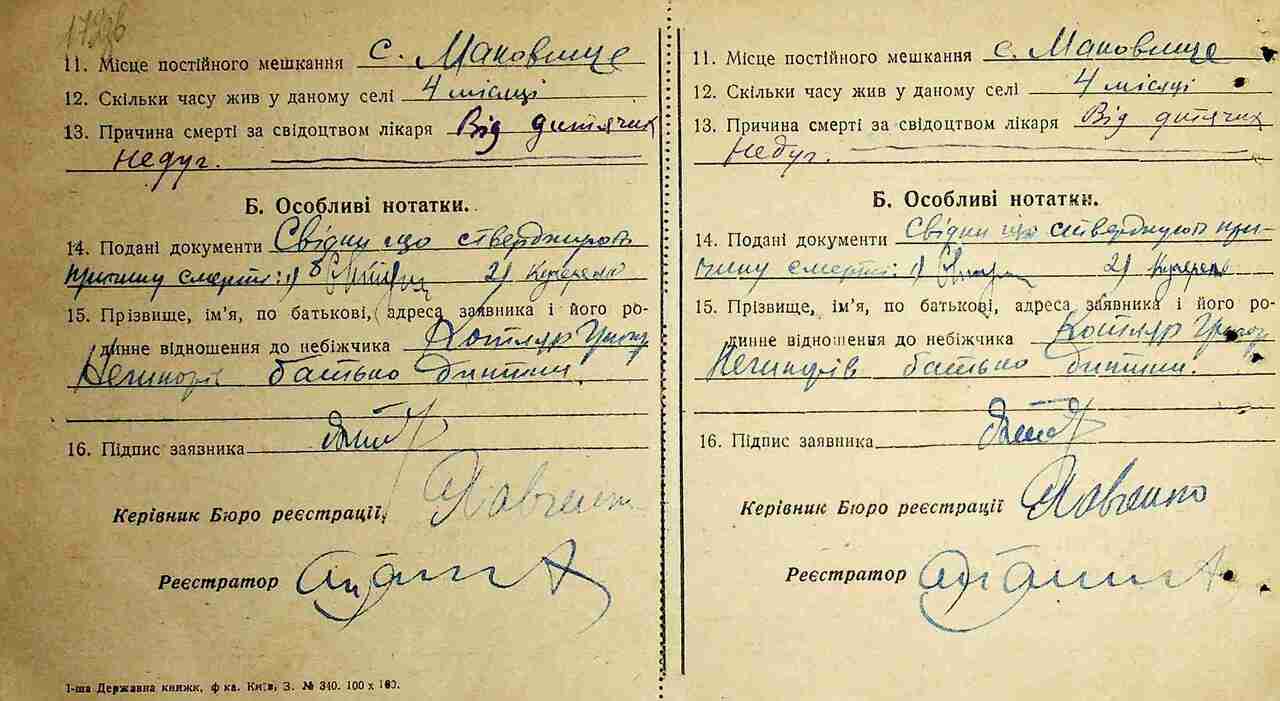 11. Місце постійного мешкання с. Маковище
12. Скільки часу жив у даному селі 4 місяці
13. Причина смерті за свідоцтвом лікаря Від дитячих
недуг.
Б. Особливі нотатки.
14. Подані документи Свідки що стверджують
причину смерті: 1) 2)
15. Прізвище, ім’я, по батькові, адреса заявника і його ро-
динне відношення до небіжчика Котляр
батько дитини.
16. Підпис заявника
Керівник Бюро реєстрації
Реєстратор
1-ша Державна книжк. ф-ка. Київ, З. № 340. 100 х 100.
11. Місце постійного мешкання с. Маковище
12. Скільки часу жив у даному селі 4 місяці
13. Причина смерті за свідоцтвом лікаря Від дитячих
недуг.
Б. Особливі нотатки.
14. Подані документи Свідки що стверджують при-
чину смерті: 1) 2)
15. Прізвище, ім’я, по батькові, адреса заявника і його ро-
динне відношення до небіжчика Котляр
батько дитини.
16. Підпис заявника
Керівник Бюро реєстрації
Реєстратор